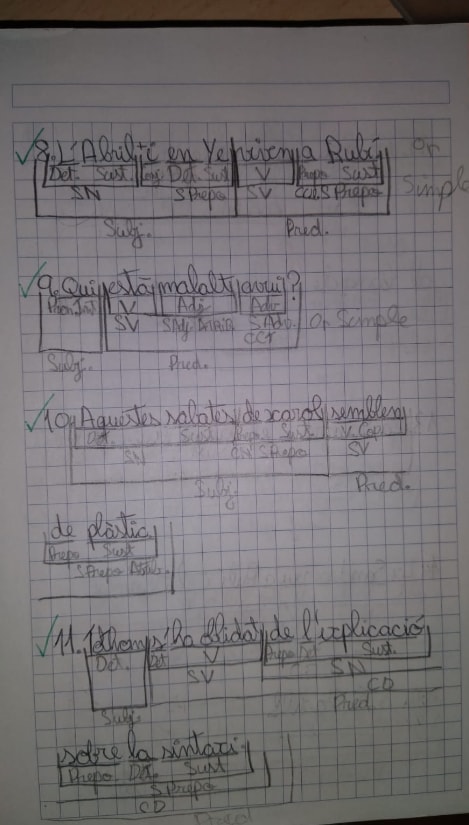 8. L'Abril i en Ye viven a Rubí Or
Det. Sust. Conj Det. Sust V Prepo Sust Simple
SN S Prepo SV CCL S Prepo
Subj. Pred.
9. Qui està malalt avui?
Pron. Int V Adj Adv
SV SAdj Atrib SAdv. Or Simple
CCT
Subj. Pred.
10. Aquestes sabates de xarol semblen
Det. Sust Prepo Sust. V. Cop
SN CN SPrepo SV
Subj Pred.
de plàstic
Prepo Sust
S Prepo
11. Tothom s'ha oblidat de l'explicació
Det. V Prepo Det Sust.
SV SN
CD
Subj. Pred
sobre la sintaxi
Prepo Det Sust
S Prepo
CD
Pred